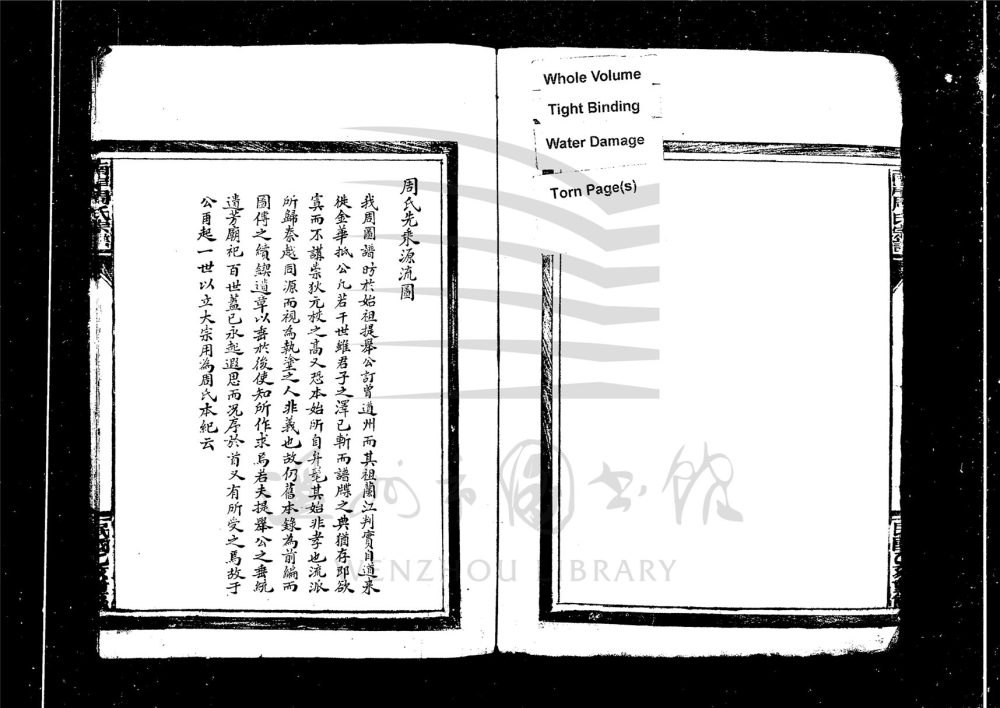 Whole Volume
Tight Binding
Water Damage
Torn Page(s)
周氏先乘源流圖
我周圖譜昉於始祖提舉公訂曾道州而其祖蘭江判實自道來
徙金華抵公凡若干世雖君子之澤已斬而譜牒之典猶存即欲
寘而不講崇狄元梓之高又恐本始所自弁髦其始非孝也流派
所歸秦越同源而視為執塗之人非義也故仍舊本錄為前編而
圖傳之續鍥遺章以垂於後使知所作求焉若夫提舉公之垂統
遺芳廟祀百世蓋已永起遐思而況序於首又有所受之焉故于
公再起一世以立大宗用為周氏本紀云
溫州市圖書館
WENZHOU LIBRARY